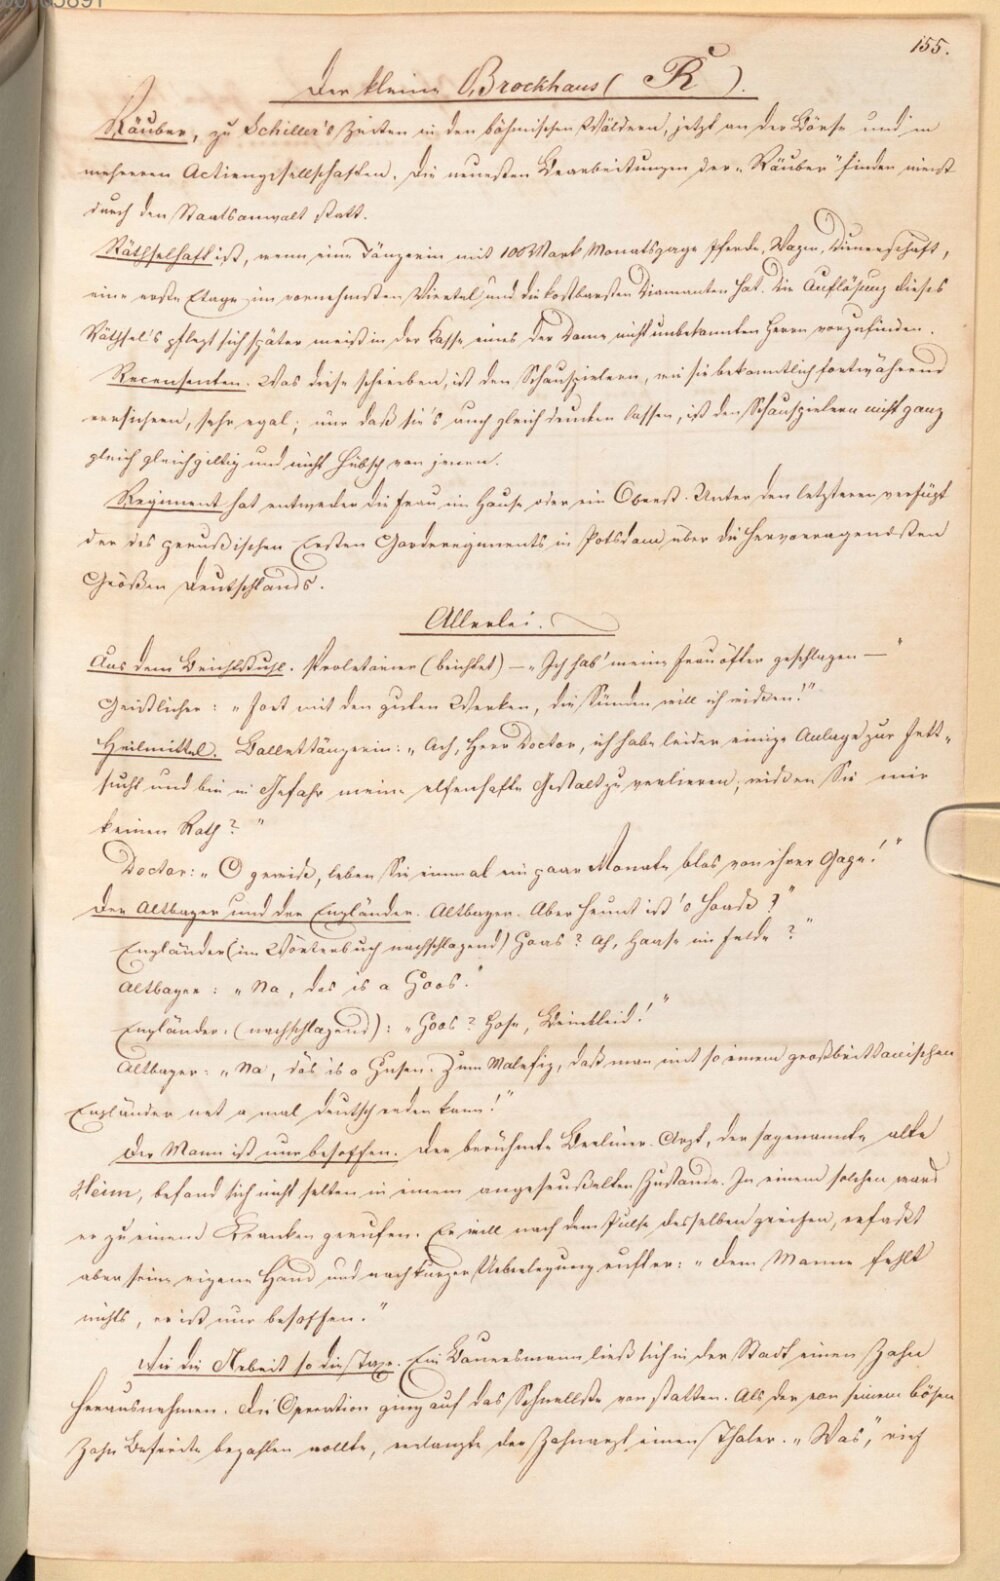 155.
Der kleine Brockhaus (R).
Räuber, zu Schiller's Zeiten in den böhmischen Wäldern, jetzt an der Börse und in
mehreren Actiengesellschaften. Die neuesten Bearbeitungen der „Räuber" finden meist
durch den Staatsanwalt statt.
Räthselhaft ist, wenn eine Tänzerin mit 100 Mark Monatsgage Pferde, Wagen, Dienerschaft,
eine erste Etage im vornehmsten Viertel und die kostbarsten Diamanten hat. Die Auflösung dieses
Räthsel's pflegt sich später meist in der Kasse eines der Dame nicht unbekannten Herrn vorzufinden.
Recensenten. Was diese schreiben, ist den Schauspielern, wie sie bekanntlich fortwährend
versichern, sehr egal; nur daß sie's auch gleich drucken lassen, ist den Schauspielern nicht ganz
gleich gleichgiltig und nicht hübsch von jenen.
Regiment hat entweder die Frau im Hause oder ein Oberst. Unter den letzteren verfügt
der des preußischen Ersten Garderegiments in Potsdam über die hervorragendsten
Größen Deutschlands.
Allerlei.
Aus dem Beichtstuhl. Proletarier (beichtet) — „Ich hab' meine Frau öfter geschlagen —"
Geistlicher: „Fort mit den guten Werken, die Sünden will ich wissen!"
Heilmittel. Ballettänzerin: „Ach, Herr Doctor, ich habe leider einige Anlage zur Fett-
sucht und bin in Gefahr meine elfenhafte Gestalt zu verlieren; wissen Sie mir
keinen Rath?"
Doctor: „O gewiss, leben Sie einmal ein paar Monate blos von ihrer Gage!"
Der Altbayer und der Engländer. Altbayer. Aber heunt ist's haass?"
Engländer (im Wörterbuch nachschlagend) Haas? Ah, Haase im Felde?"
Altbayer: „Na, des is a Hoos."
Engländer. (nachschlagend): „Hoos? Hose, Beinkleid!"
Altbayer: „Na, dös is a Husen. Zum Malefiz, daß man mit so einem großbrittanischen
Engländer net a mal deutsch reden kann!"
Der Mann ist nur besoffen. Der berühmte Berliner Arzt, der sogenannte alte
Heim, befand sich nicht selten in einem angesäuselten Zustande. In einem solchen ward
er zu einem Kranken gerufen. Er will nach dem Pulse desselben greifen, erfasst
aber seine eigene Hand und nach kurzer Ueberlegung ruft er: „dem Manne fehlt
nichts, er ist nur besoffen."
Wie die Arbeit so die Taxe. Ein Bauersmann ließ sich in der Stadt einen Zahn
herausnehmen. Die Operation ging auf das Schnellste von statten. Als der von seinem bösen
Zahn Befreite bezahlen wollte, verlangte der Zahnarzt einen Thaler. „Was", rief